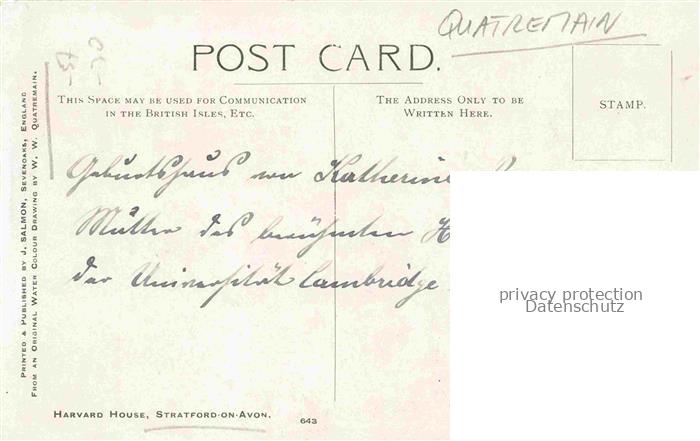 QUATREMAIN
POST CARD.
THIS SPACE MAY BE USED FOR COMMUNICATION
IN THE BRITISH ISLES, ETC.
THE ADDRESS ONLY TO BE
WRITTEN HERE.
STAMP.
PRINTED & PUBLISHED BY J. SALMON, SEVENOAKS, ENGLAND
FROM AN ORIGINAL WATER COLOUR DRAWING BY W. W. QUATREMAIN.
Geburtshaus von Katherine
Mutter des berühmten H
der Universität Cambridge
privacy protection
Datenschutz
HARVARD HOUSE, STRATFORD-ON-AVON.
643